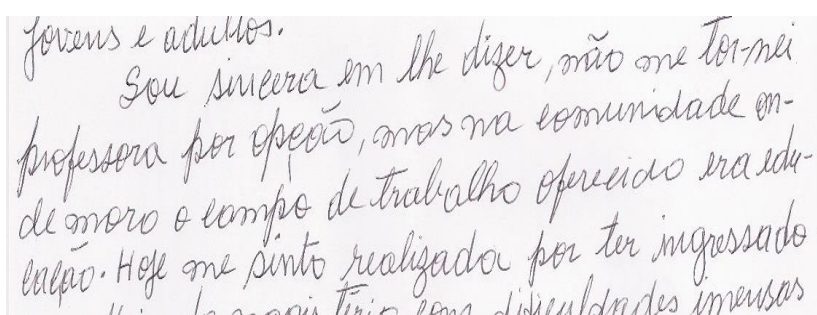 jovens e adultos.
Sou sincera em lhe dizer, não me tor-nei
professora por opção, mas na comunidade on-
de moro o campo de trabalho oferecido era edu-
cação. Hoje me sinto realizada por ter ingressado
magistério com dificuldades imensas